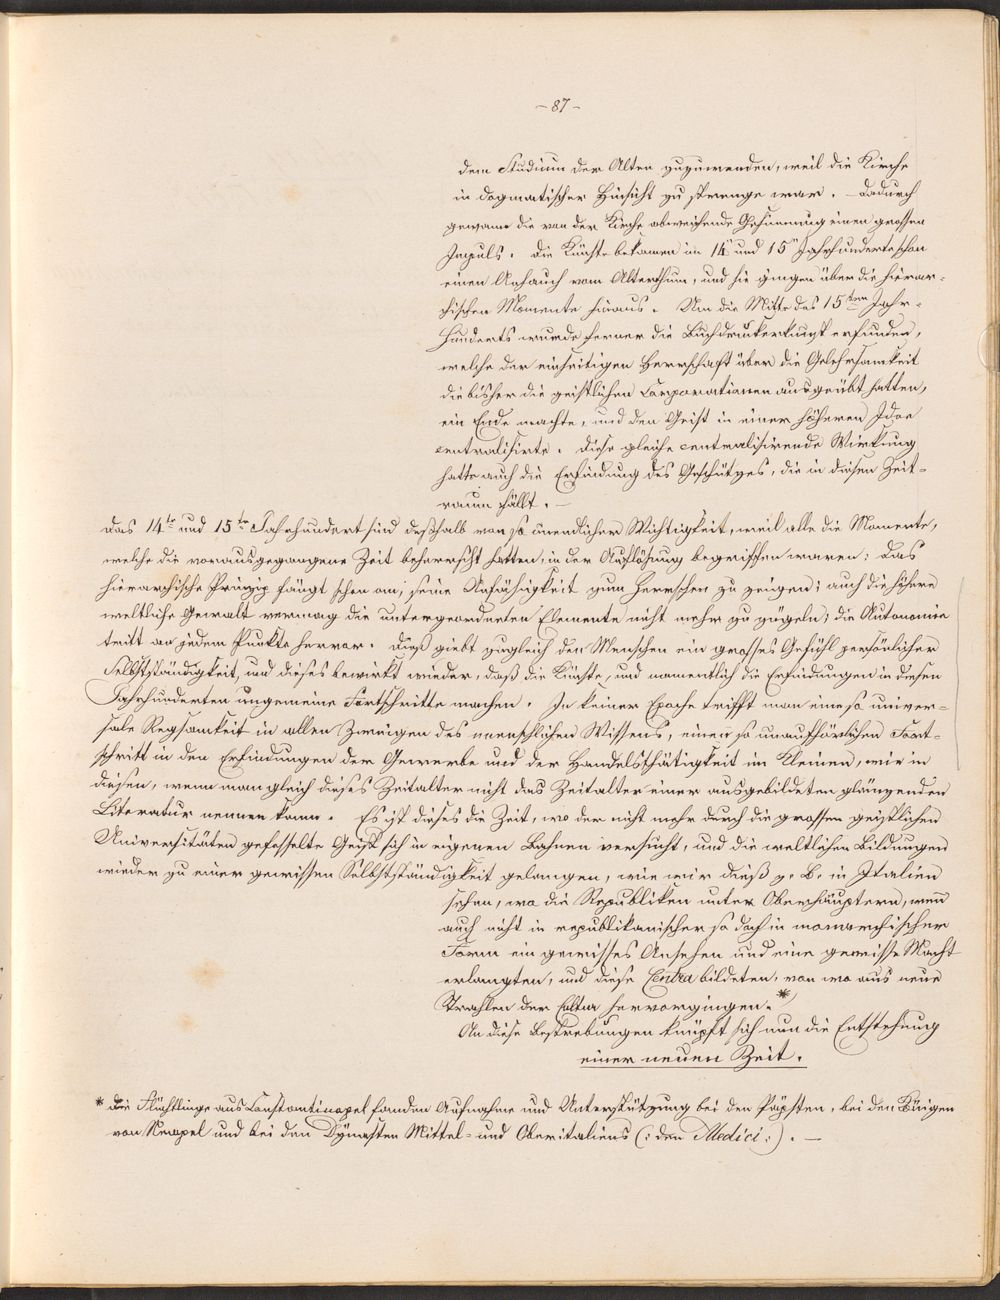 - 87 -
dem Studium der Alten zuzuwenden, weil die Kirche
in dogmatischer Hinsicht zu strenge war. - Dadurch
gewann die von der Kirche abweichende Gesinnung einen grossen
Impuls. Die Künste bekamen im 14" und 15" Jahrhunderte schon
einen Anhauch vom Alterthum, und sie gingen über die hierar-
chischen Momente hinaus. Um die Mitte des 15ten Jahr-
hunderts wurde ferner die Buchdruckerkunst erfunden,
welche der einseitigen Herrschaft über die Gelehrsamkeit
die bisher die geistlichen Corporationen ausgeübt hatten,
ein Ende machte, und den Geist in einer höheren Idee
centralisirte. Diese gleiche centralisirende Wirkung
hatte auch die Erfindung des Geschützes, die in diesen Zeit-
raum fällt. -
Das 14te und 15te Jahrhundert sind deßhalb von so unendlicher Wichtigkeit, weil alle die Momente,
welche die vorausgegangene Zeit beherrscht hatten, in der Auflösung begriffen waren: Das
hierarchische Prinzip fängt schon an, seine Unfähigkeit zum Herrschen zu zeigen; auch die höhere
weltliche Gewalt vermag die untergeordneten Elemente nicht mehr zu zügeln; die Autonomie
tritt an jedem Punkte hervor. Dieß giebt zugleich den Menschen ein grosses Gefühl persönlicher
Selbstständigkeit, und dieses bewirkt wieder, daß die Künste, und namentlich die Erfindungen in diesen
Jahrhunderten ungemeine Fortschritte machen. In keiner Epoche trifft man eine so univer-
sale Regsamkeit in allen Zweigen des menschlichen Wissens, einen so unaufhörlichen Fort-
schritt in den Erfindungen der Gewerbe und der Handelsthätigkeit im Kleinen, wie in
diesen, wenn man gleich dieses Zeitalter nicht das Zeitalter einer ausgebildeten glänzenden
Literatur nennen kann. Es ist dieses die Zeit, wo der nicht mehr durch die grossen geistlichen
Universitäten gefesselte Geist sich in eigenen Bahnen versucht, und die weltlichen Bildungen
wieder zu einer gewissen Selbstständigkeit gelangen, wie wir dieß z. B. in Italien
sehen, wo die Republiken unter Oberhäuptern, wenn
auch nicht in republikanischer so doch in monarchischer
Form ein gewisses Ansehen und eine gewisse Macht
erlangten, und diese Centra bildeten, von wo aus neue
Strahlen der Cultur hervorgingen.*
An diese Bestrebungen knüpft sich nun die Entstehung
einer neuen Zeit.
* Die Flüchtlinge aus Constantinopel fanden Aufnahme und Unterstützung bei den Päpsten, bei den Königen
von Neapel und bei den Dynasten Mittel- und Oberitaliens (: den Medici :). -